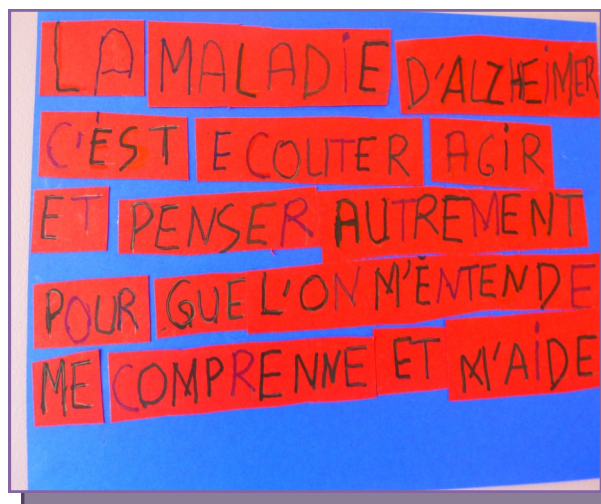 LA MALADIE D'ALZHEIMER
C'ÉST ECOUTER AGIR
ET PENSER AUTREMENT
POUR QUE L'ON M'ÉNTENDE
ME COMPRENNE ET M'AIDE